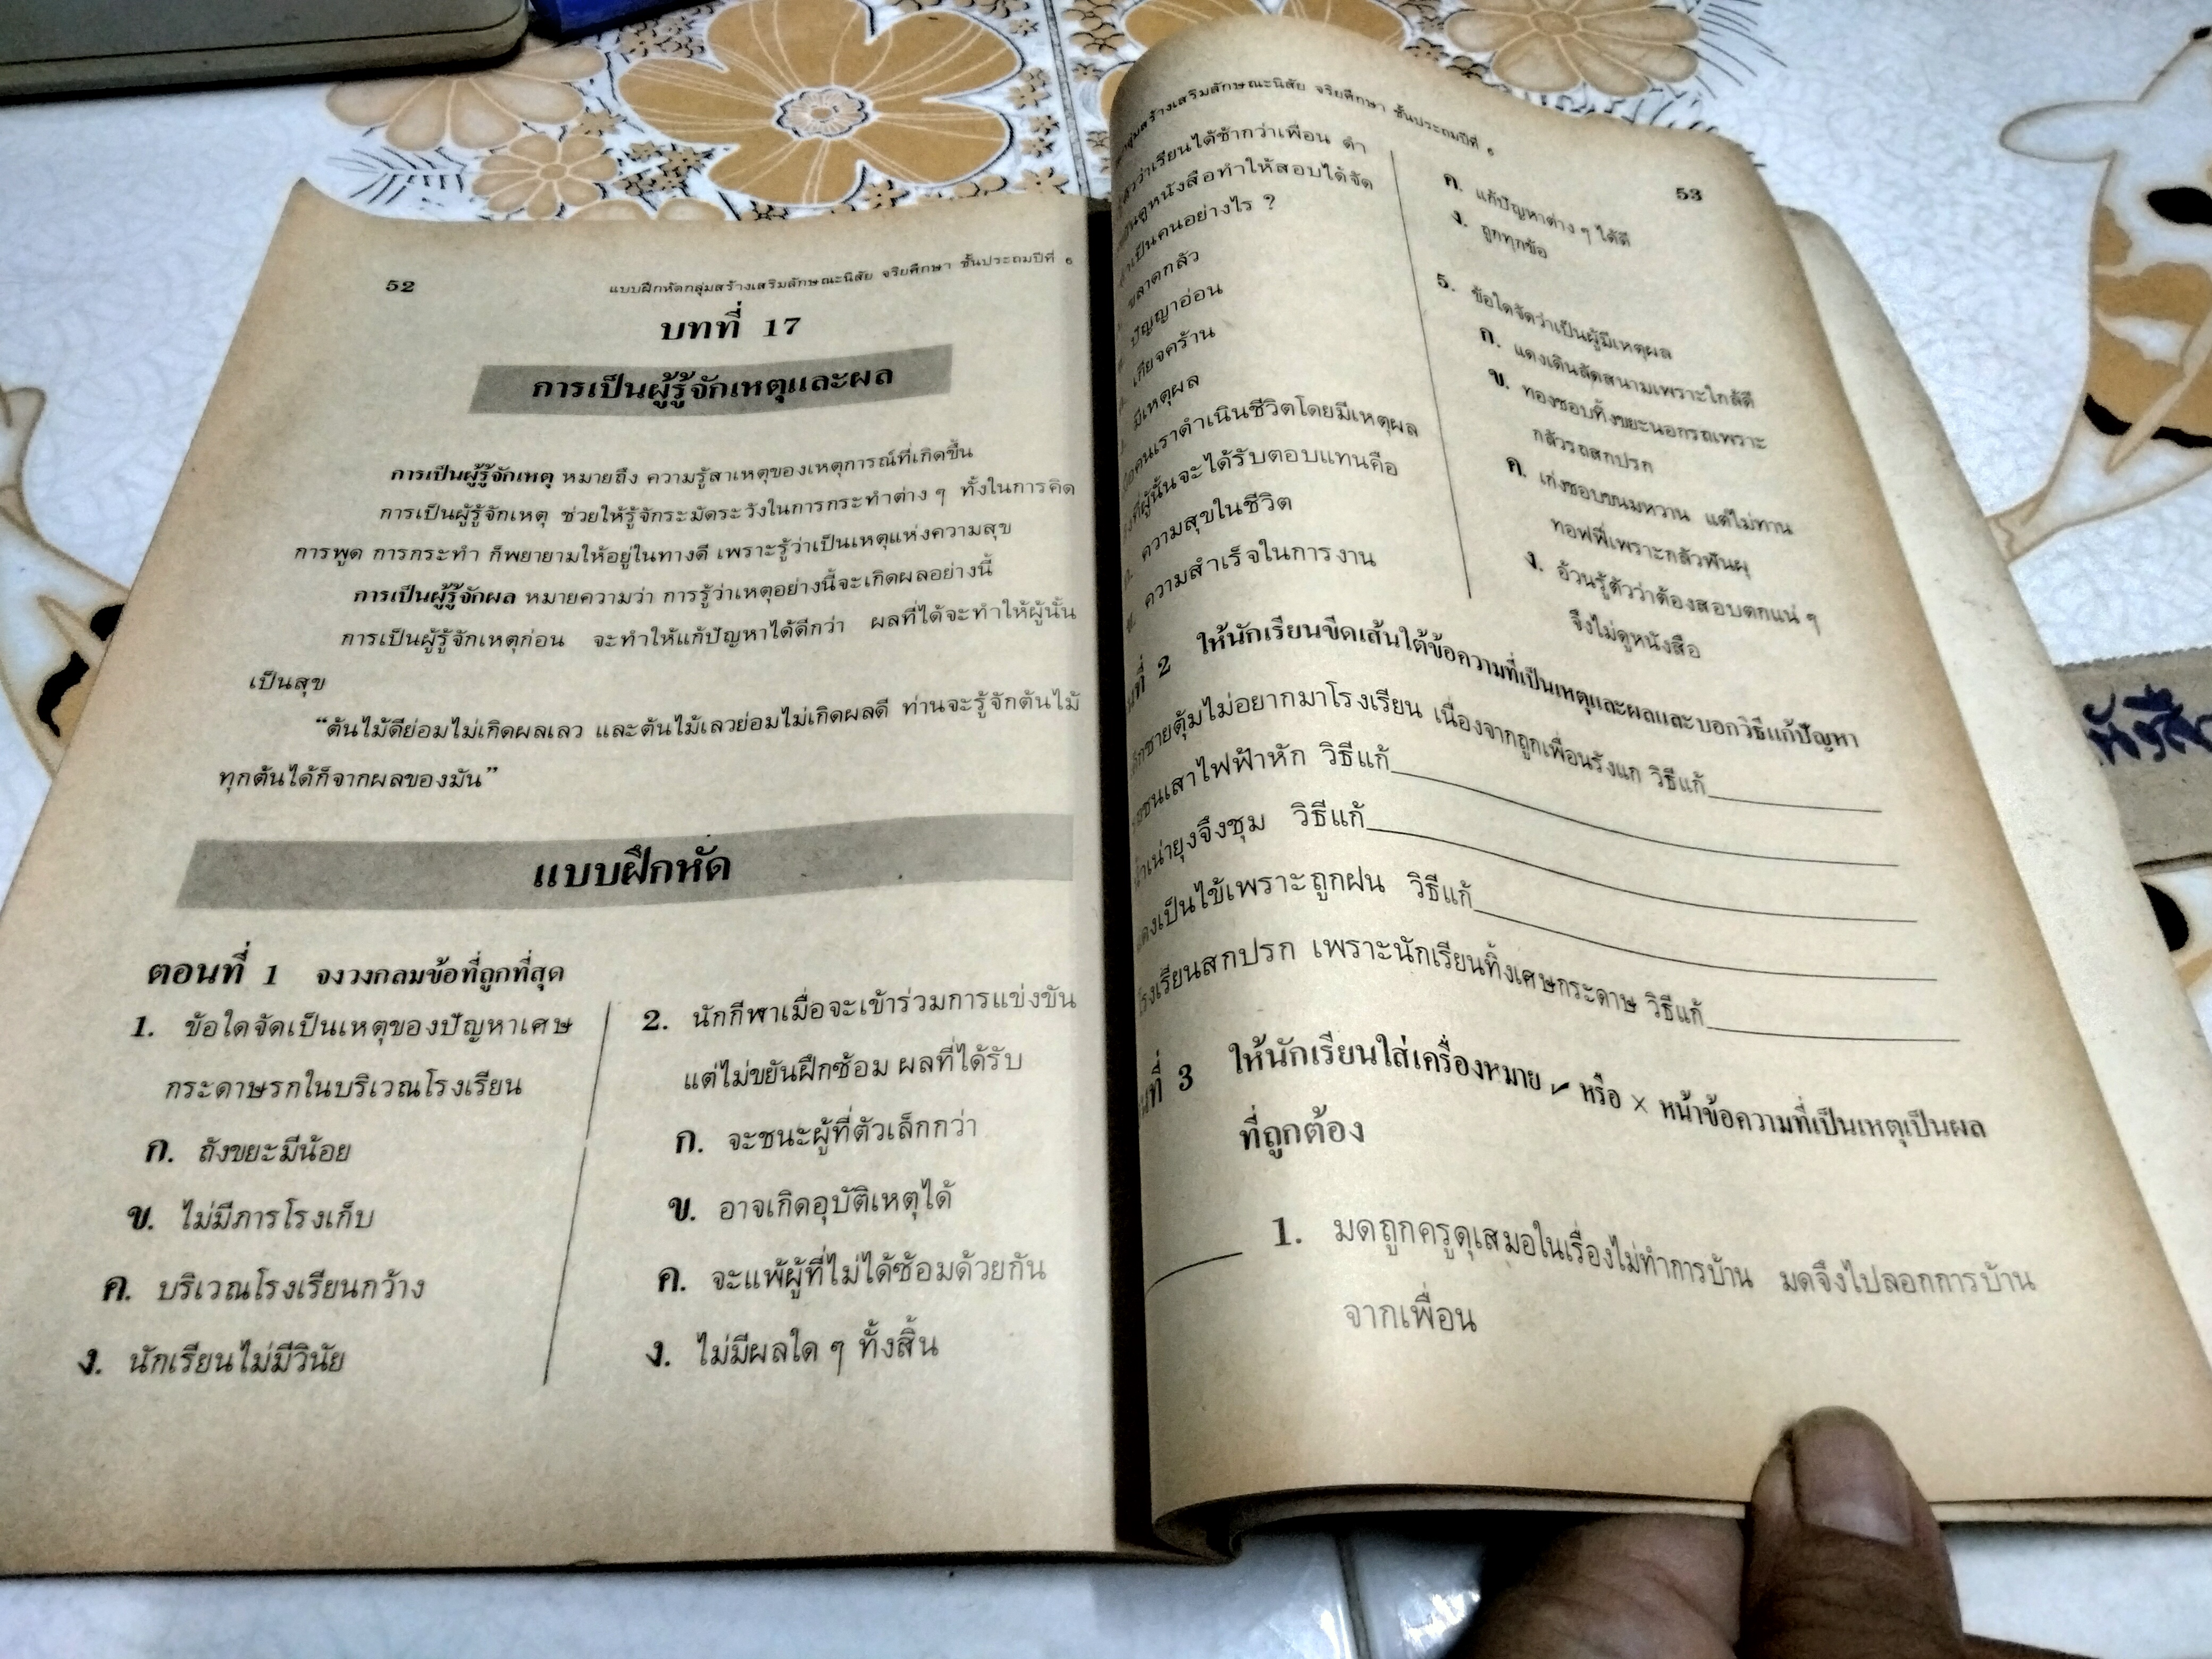 52
แบบฝึกหัดกลุ่มสร้างเสริมลักษณะนิสัย จริยศึกษา ชั้นประถมปีที่ ๖
บทที่ 17
การเป็นผู้รู้จักเหตุและผล
การเป็นผู้รู้จักเหตุ หมายถึง ความรู้สาเหตุของเหตุการณ์ที่เกิดขึ้น
การเป็นผู้รู้จักเหตุ ช่วยให้รู้จักระมัดระวังในการกระทำต่าง ๆ ทั้งในการคิด
การพูด การกระทำ ก็พยายามให้อยู่ในทางดี เพราะรู้ว่าเป็นเหตุแห่งความสุข
การเป็นผู้รู้จักผล หมายความว่า การรู้ว่าเหตุอย่างนี้จะเกิดผลอย่างนี้
การเป็นผู้รู้จักเหตุก่อน จะทำให้แก้ปัญหาได้ดีกว่า ผลที่ได้จะทำให้ผู้นั้น
เป็นสุข
“ต้นไม้ดีย่อมไม่เกิดผลเลว และต้นไม้เลวย่อมไม่เกิดผลดี ท่านจะรู้จักต้นไม้
ทุกต้นได้ก็จากผลของมัน”
แบบฝึกหัด
ตอนที่ 1 จงวงกลมข้อที่ถูกที่สุด
1. ข้อใดจัดเป็นเหตุของปัญหาเศษ
กระดาษรกในบริเวณโรงเรียน
ก. ถังขยะมีน้อย
ข. ไม่มีภารโรงเก็บ
ค. บริเวณโรงเรียนกว้าง
ง. นักเรียนไม่มีวินัย
2. นักกีฬาเมื่อจะเข้าร่วมการแข่งขัน
แต่ไม่ขยันฝึกซ้อม ผลที่ได้รับ
ก. จะชนะผู้ที่ตัวเล็กกว่า
ข. อาจเกิดอุบัติเหตุได้
ค. จะแพ้ผู้ที่ไม่ได้ซ้อมด้วยกัน
ง. ไม่มีผลใด ๆ ทั้งสิ้น
สร้างเสริมลักษณะนิสัย จริยศึกษา ชั้นประถมปีที่ ๖
53
ว่าเรียนได้ช้ากว่าเพื่อน ดำ
ดูหนังสือทำให้สอบได้จัด
เป็นคนอย่างไร ?
ขลาดกลัว
ปัญญาอ่อน
เกียจคร้าน
มีเหตุผล
คนเราดำเนินชีวิตโดยมีเหตุผล
ที่ผู้นั้นจะได้รับตอบแทนคือ
ความสุขในชีวิต
ข. ความสำเร็จในการงาน
ค. แก้ปัญหาต่าง ๆ ได้ดี
ง. ถูกทุกข้อ
5. ข้อใดจัดว่าเป็นผู้มีเหตุผล
ก. แดงเดินลัดสนามเพราะใกล้ดี
ข. ทองชอบทิ้งขยะนอกรถเพราะ
กลัวรถสกปรก
ค. เก่งชอบขนมหวาน แต่ไม่ทาน
ทอฟฟี่เพราะกลัวฟันผุ
ง. อ้วนรู้ตัวว่าต้องสอบตกแน่ ๆ
จึงไม่ดูหนังสือ
ที่ 2 ให้นักเรียนขีดเส้นใต้ข้อความที่เป็นเหตุและผลและบอกวิธีแก้ปัญหา
ชายตุ้มไม่อยากมาโรงเรียน เนื่องจากถูกเพื่อนรังแก วิธีแก้
ชนเสาไฟฟ้าหัก วิธีแก้
น้ำเน่ายุงจึงชุม วิธีแก้
เป็นไข้เพราะถูกฝน วิธีแก้
โรงเรียนสกปรก เพราะนักเรียนทิ้งเศษกระดาษ วิธีแก้
ที่ 3 ให้นักเรียนใส่เครื่องหมาย ✓ หรือ × หน้าข้อความที่เป็นเหตุเป็นผล
ที่ถูกต้อง
1. มดถูกครูดุเสมอในเรื่องไม่ทำการบ้าน มดจึงไปลอกการบ้าน
จากเพื่อน